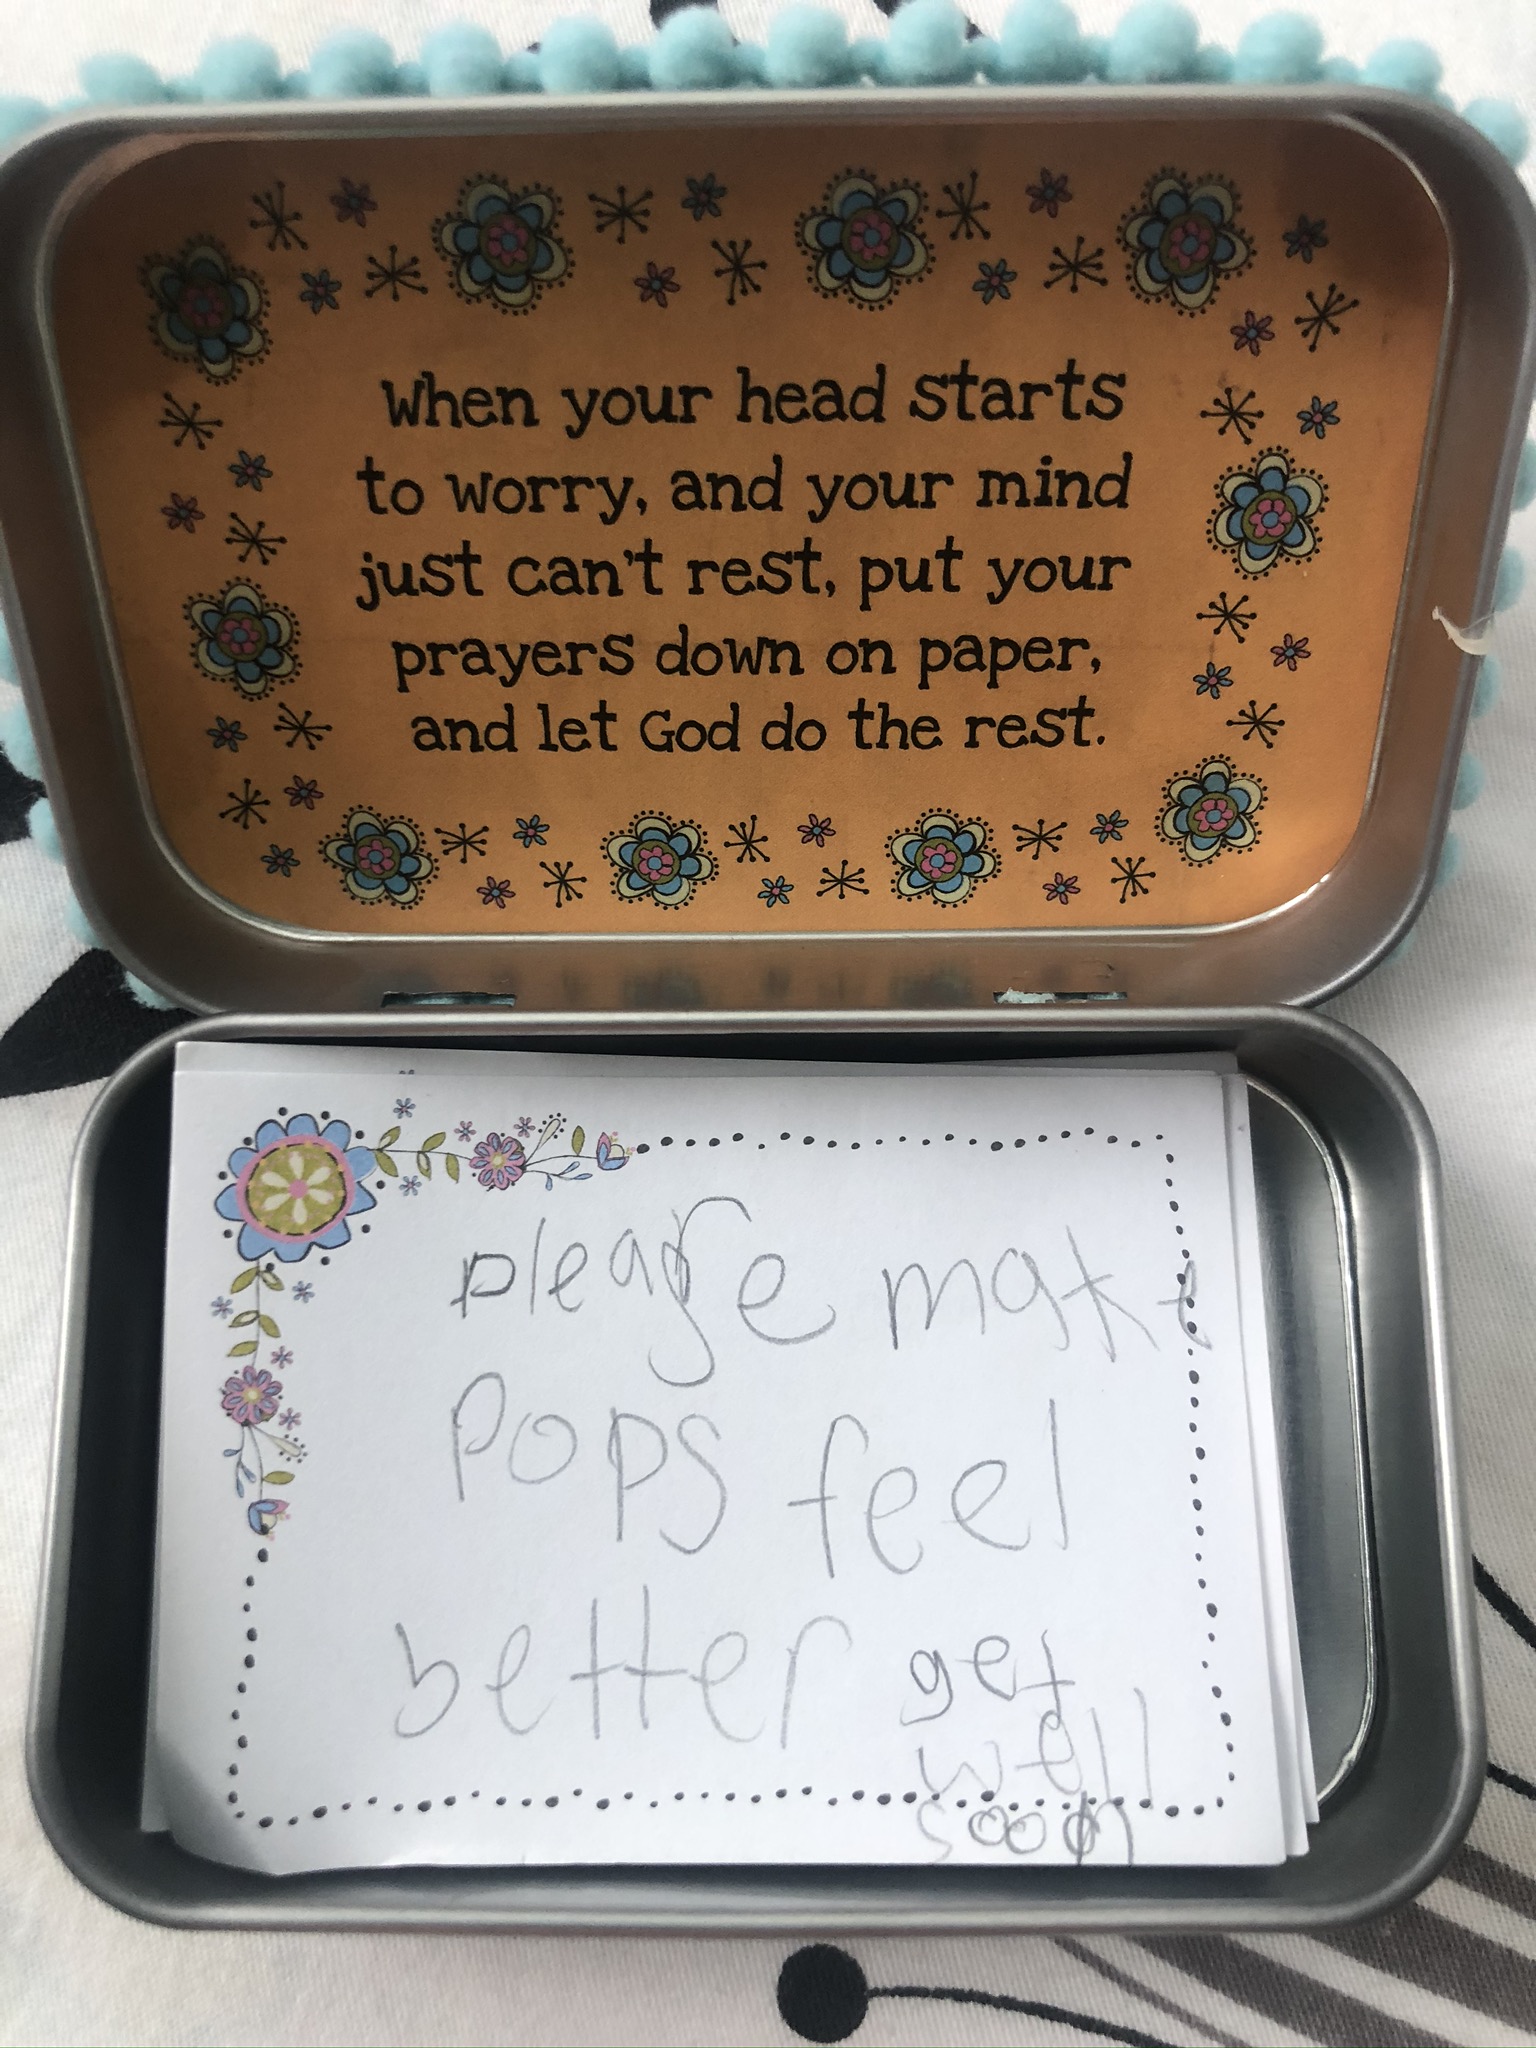 When your head starts
to worry, and your mind
just can't rest, put your
prayers down on paper,
and let God do the rest.
please make
Pops feel
better get
well
soon